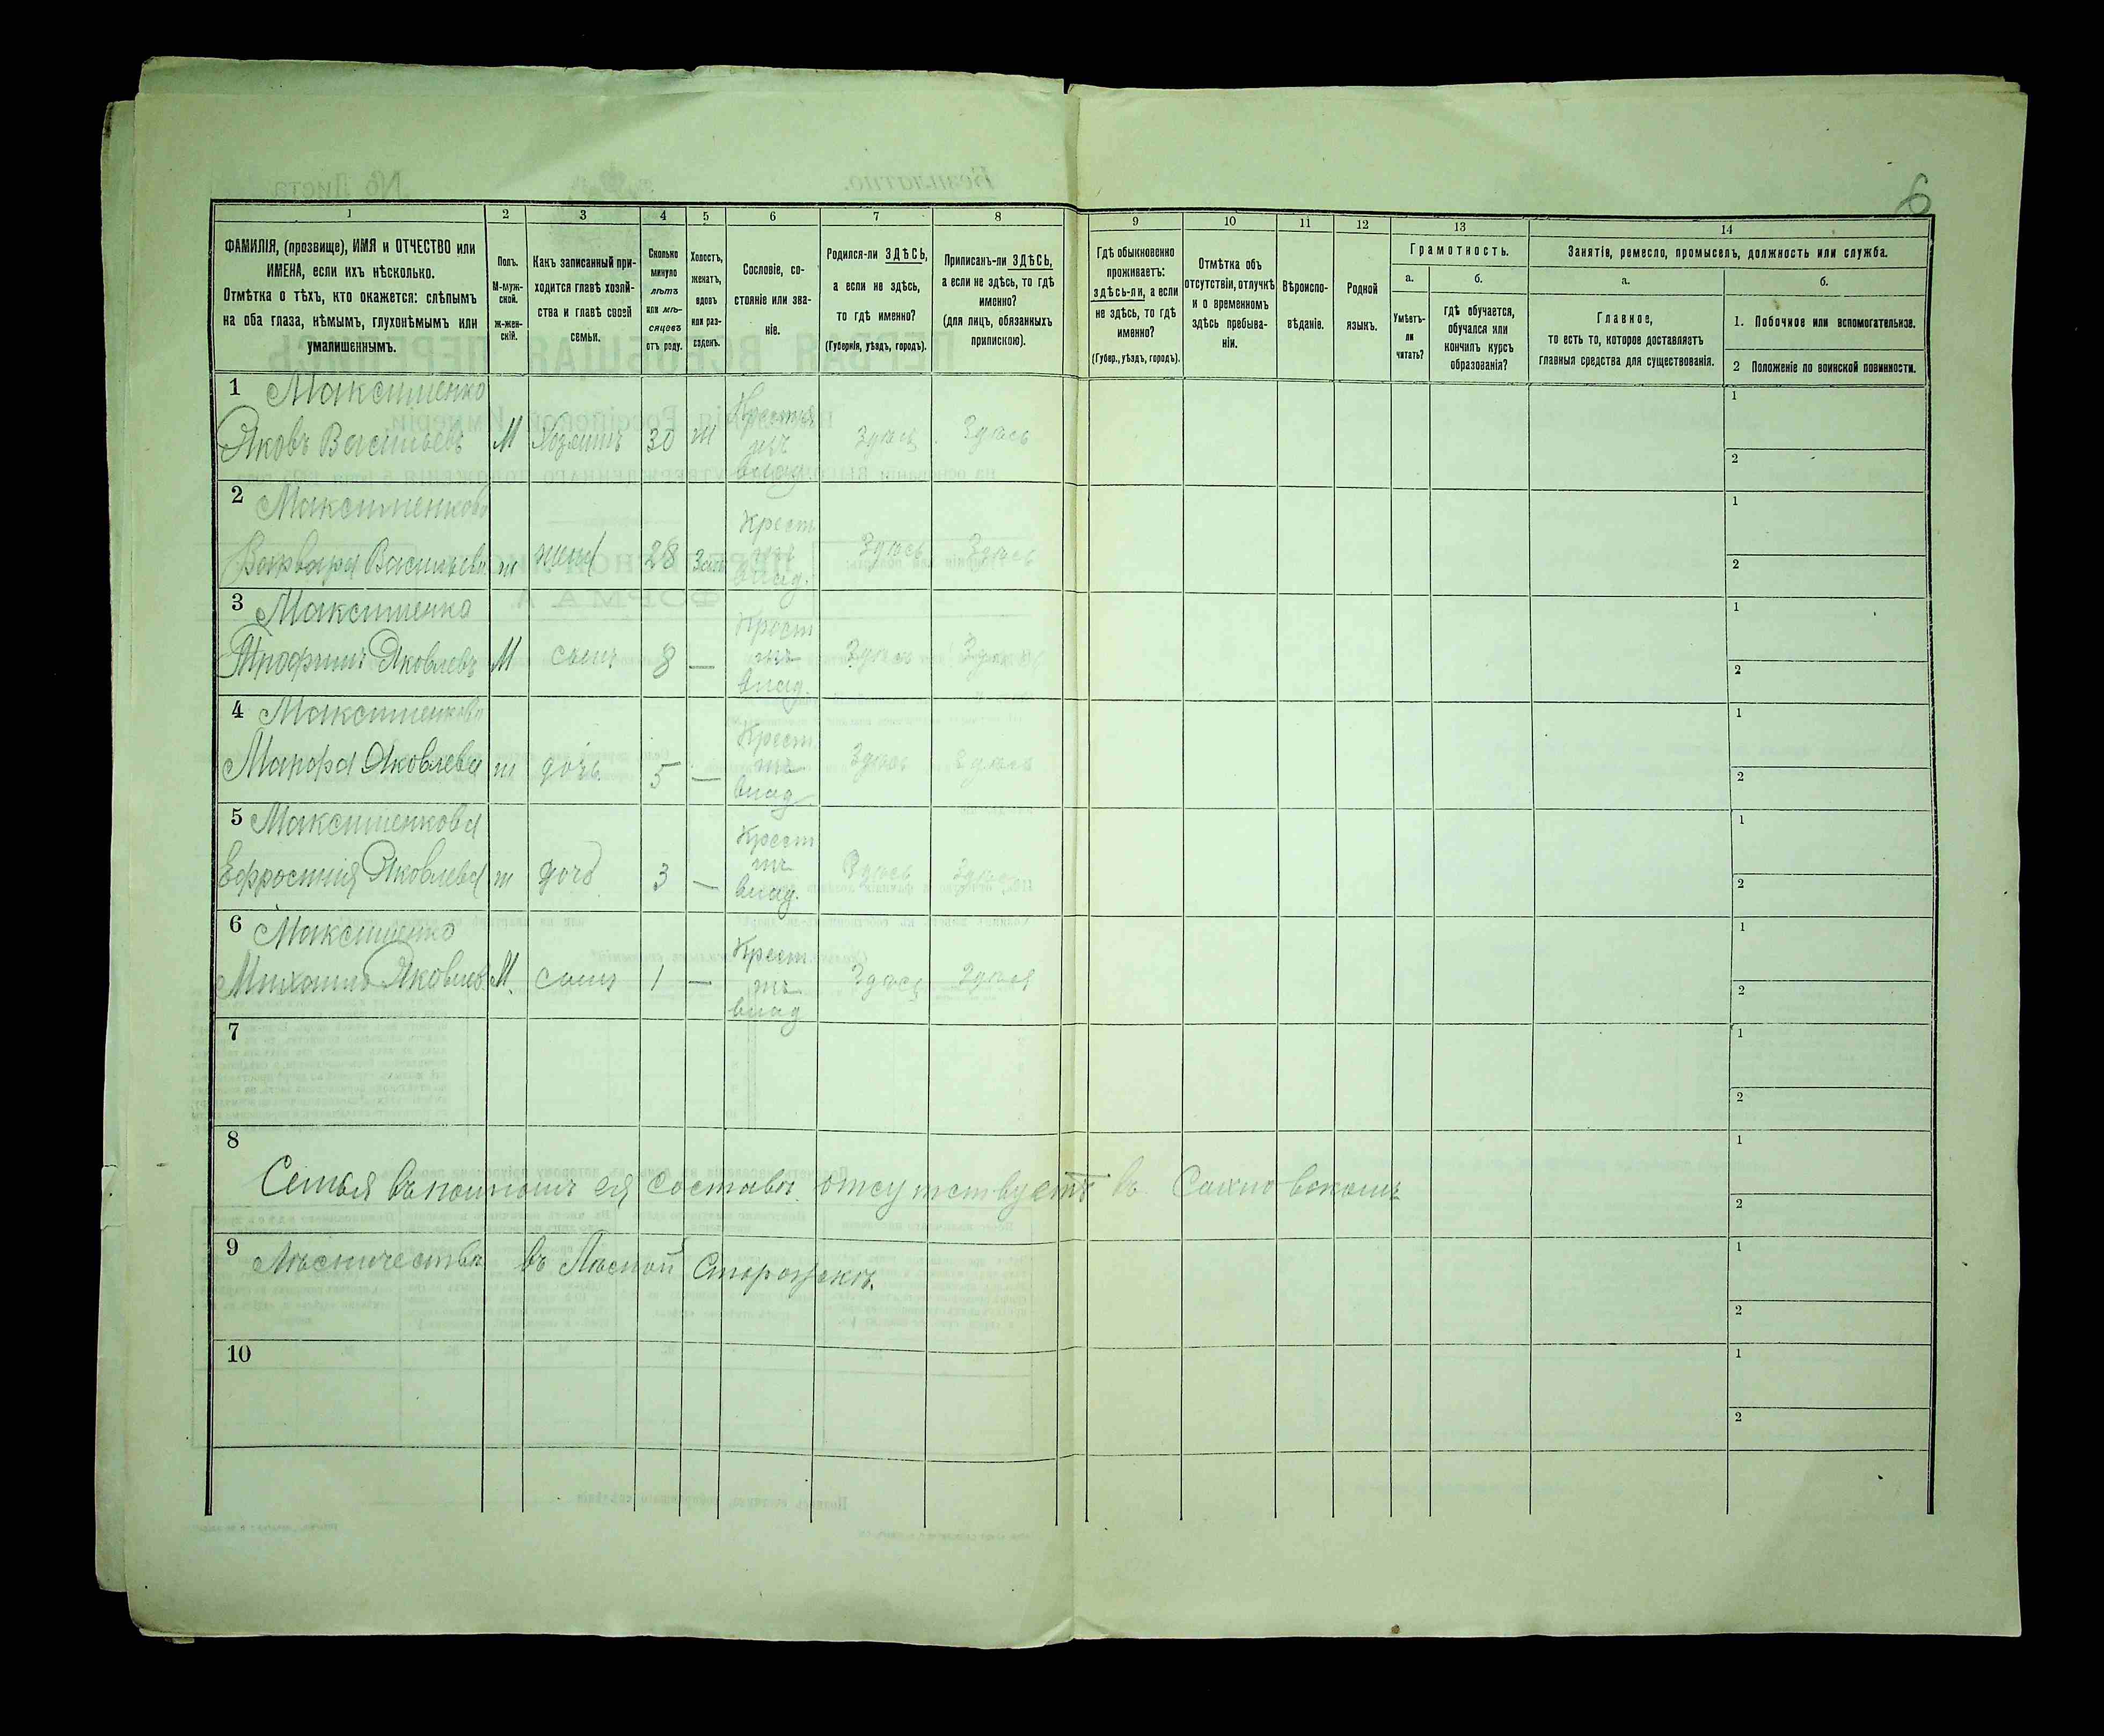 6
1 2 3 4 5 6 7 8 9 10 11 12 13 14
ФАМИЛІЯ, (прозвище), ИМЯ и ОТЧЕСТВО или
ИМЕНА, если ихъ нѣсколько.
Отмѣтка о тѣхъ, кто окажется: слѣпымъ
на оба глаза, нѣмымъ, глухонѣмымъ или
умалишеннымъ.
Полъ.
М-муж-
ской.
Ж-жен-
скій.
Какъ записанный при-
ходится главѣ хозяй-
ства и главѣ своей
семьи.
Сколько
минуло
лѣтъ
или мѣ-
сяцевъ
отъ роду.
Холостъ,
женатъ,
вдовъ
или раз-
веденъ.
Сословіе, со-
стояніе или зва-
ніе.
Родился-ли ЗДѢСЬ,
а если не здѣсь,
то гдѣ именно?
(Губернія, уѣздъ, городъ).
Приписанъ-ли ЗДѢСЬ,
а если не здѣсь, то гдѣ
именно?
(для лицъ, обязанныхъ
припискою).
Гдѣ обыкновенно
проживаетъ:
здѣсь-ли, а если
не здѣсь, то гдѣ
именно?
(Губер., уѣздъ, городъ).
Отмѣтка объ
отсутствіи, отлучкѣ
и о временномъ
здѣсь пребыва-
ніи.
Вѣроиспо-
вѣданіе.
Родной
языкъ.
Грамотность.
а.
Умѣетъ-
ли
читать?
б.
гдѣ обучается,
обучался или
кончилъ курсъ
образованія?
Занятіе, ремесло, промыселъ, должность или служба.
а.
Главное,
то есть то, которое доставляетъ
главныя средства для существованія.
б.
1. Побочное или вспомогательное.
2 Положеніе по воинской повинности.
1 Максименко
Яковъ Васильевъ М Хозяинъ 30 ж Крестья изъ влад. Здѣсь Здѣсь
1
2
2 Максименкова
Варвара Васильева ж жена 28 Зам Крест изъ влад. Здѣсь Здѣсь
1
2
3 Максименко
Трофимъ Яковлевъ М сынъ 8 — Крест изъ влад. Здѣсь Здѣсь
1
2
4 Максименкова
Марфа Яковлева ж дочь 5 — Крест изъ влад Здѣсь Здѣсь
1
2
5 Максименкова
Ефросинія Яковлева ж дочь 3 — Крест изъ влад. Здѣсь Здѣсь
1
2
6 Максименко
Михаилъ Яковлев М. сынъ 1 — Крест изъ влад Здѣсь Здѣсь
1
2
7
1
2
8
1
Семья въ полномъ ея составѣ отсутствуетъ въ Сахновскомъ
2
9
1
Лѣсничествѣ въ Лѣсной Сторожкѣ.
2
10
1
2